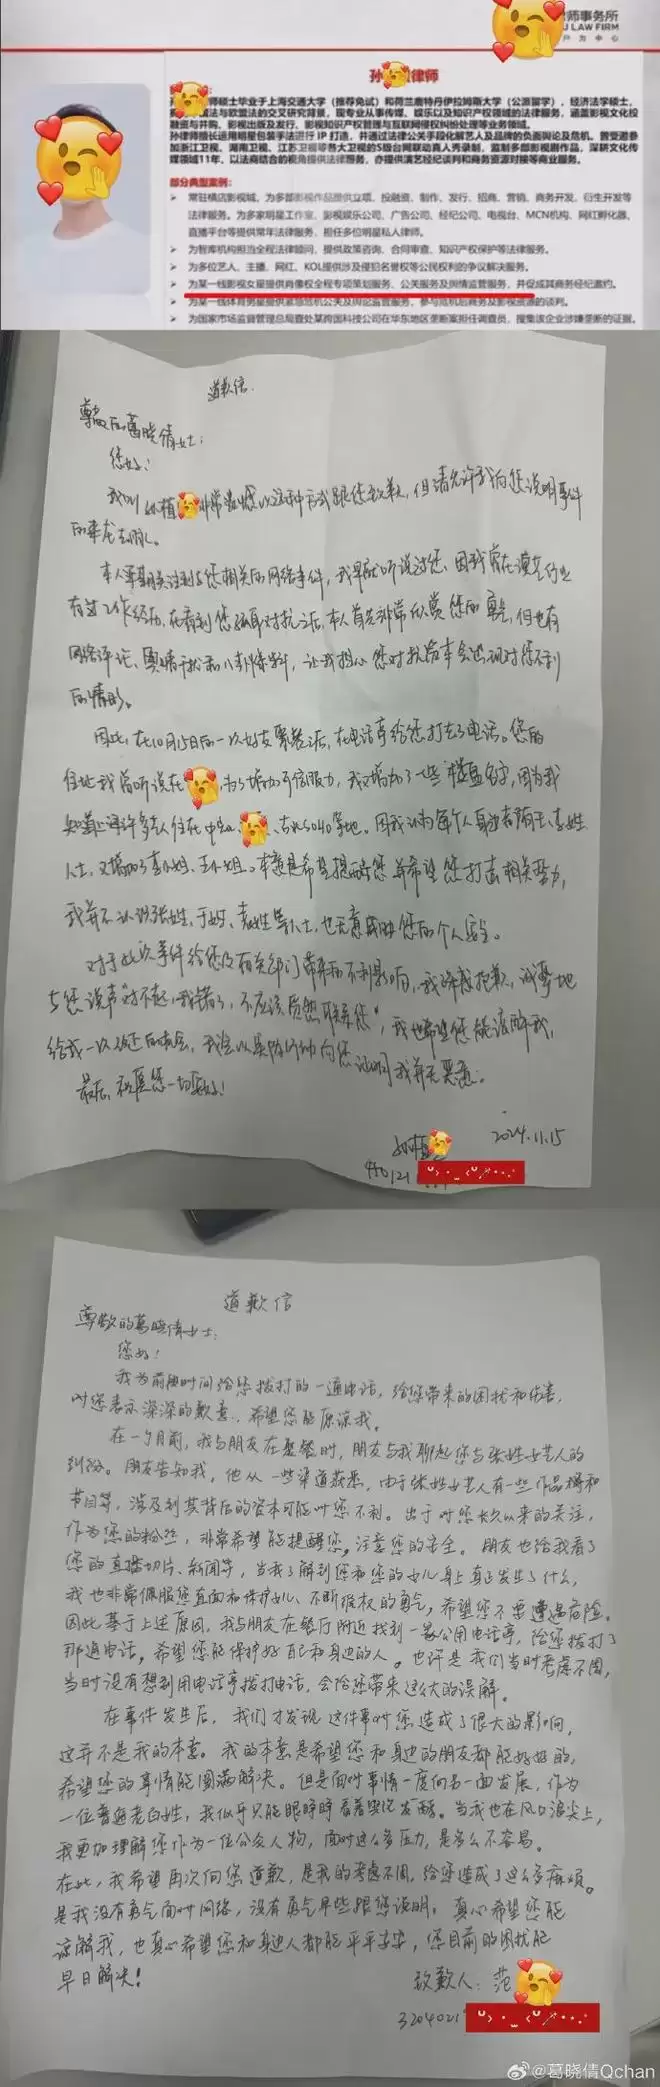 律师事务所
U LAW FIRM
户 为 中 心
孙 律师
师硕士毕业于上海交通大学（推荐免试）和荷兰鹿特丹伊拉姆斯大学（公派留学），经济法学硕士，
法与欧盟法的交叉研究背景，现专业从事传媒、娱乐以及知识产权领域的法律服务，涵盖影视文化投
融资与并购、影视出版及发行、影视知识产权管理与互联网侵权纠纷处理等业务领域。
孙律师擅长运用明星包装手法进行 IP 打造，并通过法律公关手段化解艺人及品牌的负面舆论及危机。曾受邀参
加浙江卫视、湖南卫视、江苏卫视等各大卫视的S级台网联动真人秀录制，监制多部影视剧作品，深耕文化传
媒领域11年，以法商结合的视角提供法律服务，亦提供演艺经纪谈判和商务资源对接等商业服务。
部分典型案例：
常驻横店影视城，为多部影视作品提供立项、投融资、制作、发行、招商、营销、商务开发、衍生开发等
法律服务。为多家明星工作室、影视娱乐公司、广告公司、经纪公司、电视台、MCN机构、网红孵化器、
直播平台等提供常年法律服务，担任多位明星私人律师。
为智库机构担当全程法律顾问，提供政策咨询、合同审查、知识产权保护等法律服务。
为多位艺人、主播、网红、KOL提供涉及侵犯名誉权等公民权利的争议解决服务。
为某一线影视女星提供肖像权全程专项策划服务、公关服务及舆情监管服务，并促成其商务经纪邀约。
为某一线体育男星提供紧急危机公关及舆论监管服务，参与危机后商务及影视资源的谈判。
为国家市场监督管理总局查处某跨国科技公司在华东地区垄断案担任调查员，搜集该企业涉嫌垄断的证据。
道歉信
尊敬的葛晓倩女士：
您好！
我叫孙植 非常抱歉以这种方式跟您致歉，但请允许我向您说明事件
的来龙去脉。
本人早期关注到与您相关的网络事件，我早就听说过您，因我曾在演艺行业
有过工作经历，在看到您强烈对抗之后，本人首先非常欣赏您的勇气，但也有
网络评论、舆情干扰和八卦爆料，让我担心您对抗后会出现对您不利
的情形。
因此，在10月15日的一次好友聚餐后，在电话亭给您打去了电话。您的
住址我曾听说在 ，为了增加可信服力，我又增加了一些楼盘名字，因为我
知道上海许多艺人住在中 、 、古北SOHO等地。因我认为每个人身边都有王、李姓
人士，又增加了李小姐、王小姐。本意是希望提醒您并希望您打击相关势力，
我并不认识张姓、于姓、袁姓等人士，也无意威胁您的个人安全。
对于此次事件给您及有关部门带来的不利影响，我深感抱歉，诚挚地
与您说声“对不起，我错了，不应该贸然联系您”，我也希望您能谅解我，
给我一次改正的机会，我会以实际行动向您证明我并无恶意。
最后，祝愿您一切安好！
孙植
2024.11.15
450121
道歉信
尊敬的葛晓倩女士：
您好！
我为前段时间给您拨打的一通电话，给您带来的困扰和伤害，
对您表示深深的歉意，希望您能原谅我。
在一个月前，我与朋友在聚餐时，朋友与我聊起您与张姓女艺人的
纠纷。朋友告知我，他从一些渠道获悉，由于张姓女艺人有一些作品播和
节目等，涉及到其背后的资本可能对您不利。出于对您长久以来的关注，
作为您的粉丝，非常希望能提醒您，注意您的安全。朋友也给我看了
您的直播切片、新闻等，当我了解到您和您的女儿身上真正发生了什么，
我也非常佩服您直面和保护女儿、不断维权的勇气，希望您不要遭遇危险。
因此基于上述原因，我与朋友在餐厅附近找到一家公用电话亭，给您拨打了
那通电话，希望您能保护好自己和身边的人。也许是我们当时考虑不周，
当时没有想到用电话亭拨打电话，会给您带来这么大的误解。
在事件发生后，我们才发现这件事对您造成了很大的影响，
这并不是我的本意。我的本意是希望您和身边的朋友都能好好的，
希望您的事情能圆满解决。但是面对事情一度向另一面发展，作为
一位普通老百姓，我似乎只能眼睁睁看着舆论发酵。当我也在风口浪尖上，
我更加理解您作为一位公众人物，面对这么多压力，是多么不容易。
在此，我希望再次向您道歉，是我的考虑不周，给您造成了这么多麻烦。
是我没有勇气面对网络，没有勇气早些跟您说明。真心希望您能
谅解我，也真心希望您和身边人都能平平安安，您目前的困扰能
早日解决！
致歉人：范
3204021
@葛晓倩Qchan